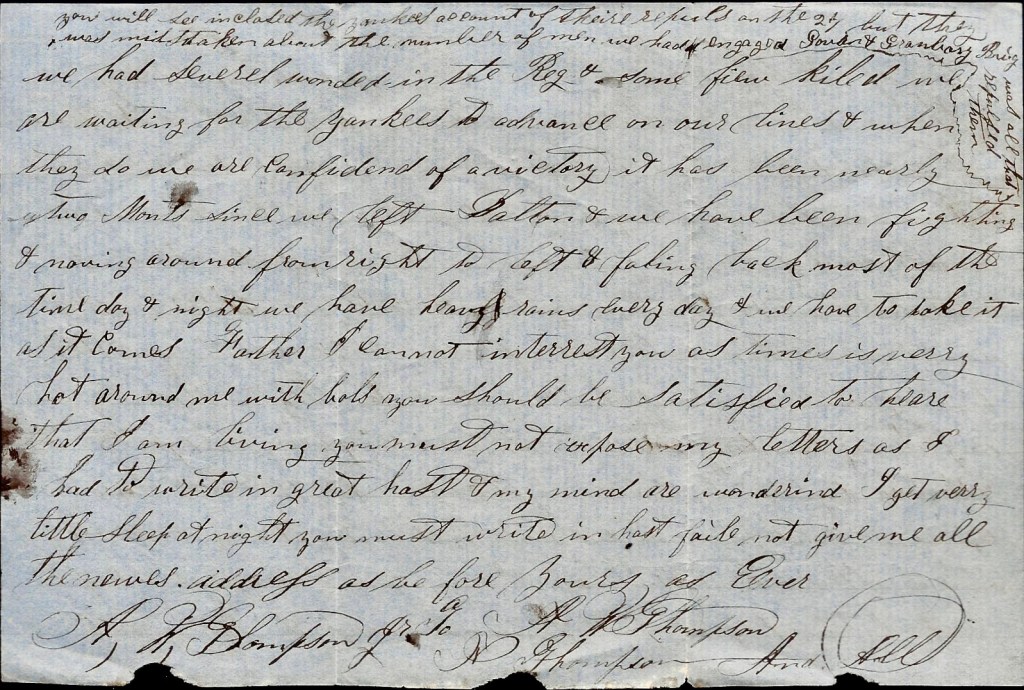 you will see inclosed the yankees account of theire repuls on the 2d but they
was mistaken about the number of men we had engaged & Granbary Brig
was all that
repulsed
them
we had severel wonded in the Reg & some fiew killed we
are waiting for the yankees to advance on our lines & when
they do we are Confidend of a victory it has been nearly
two Monts since we left Dalton & we have been fighting
& moving around from right to left & faling back most of the
time day & night we have heavy rains every day & we have to take it
as it Comes Farther I cannot interrest you as times is verry
hot around me with bols you should be satisfied to heare
that I am living you must not expose my letters as I
had to write in great hast & my mind are wonderind I get verry
little sleep at night you must write in hast faile not give me all
the newes. address as be fore Yours as Ever
A, W, Thompson Jr To A W Thompson
Thompson And All